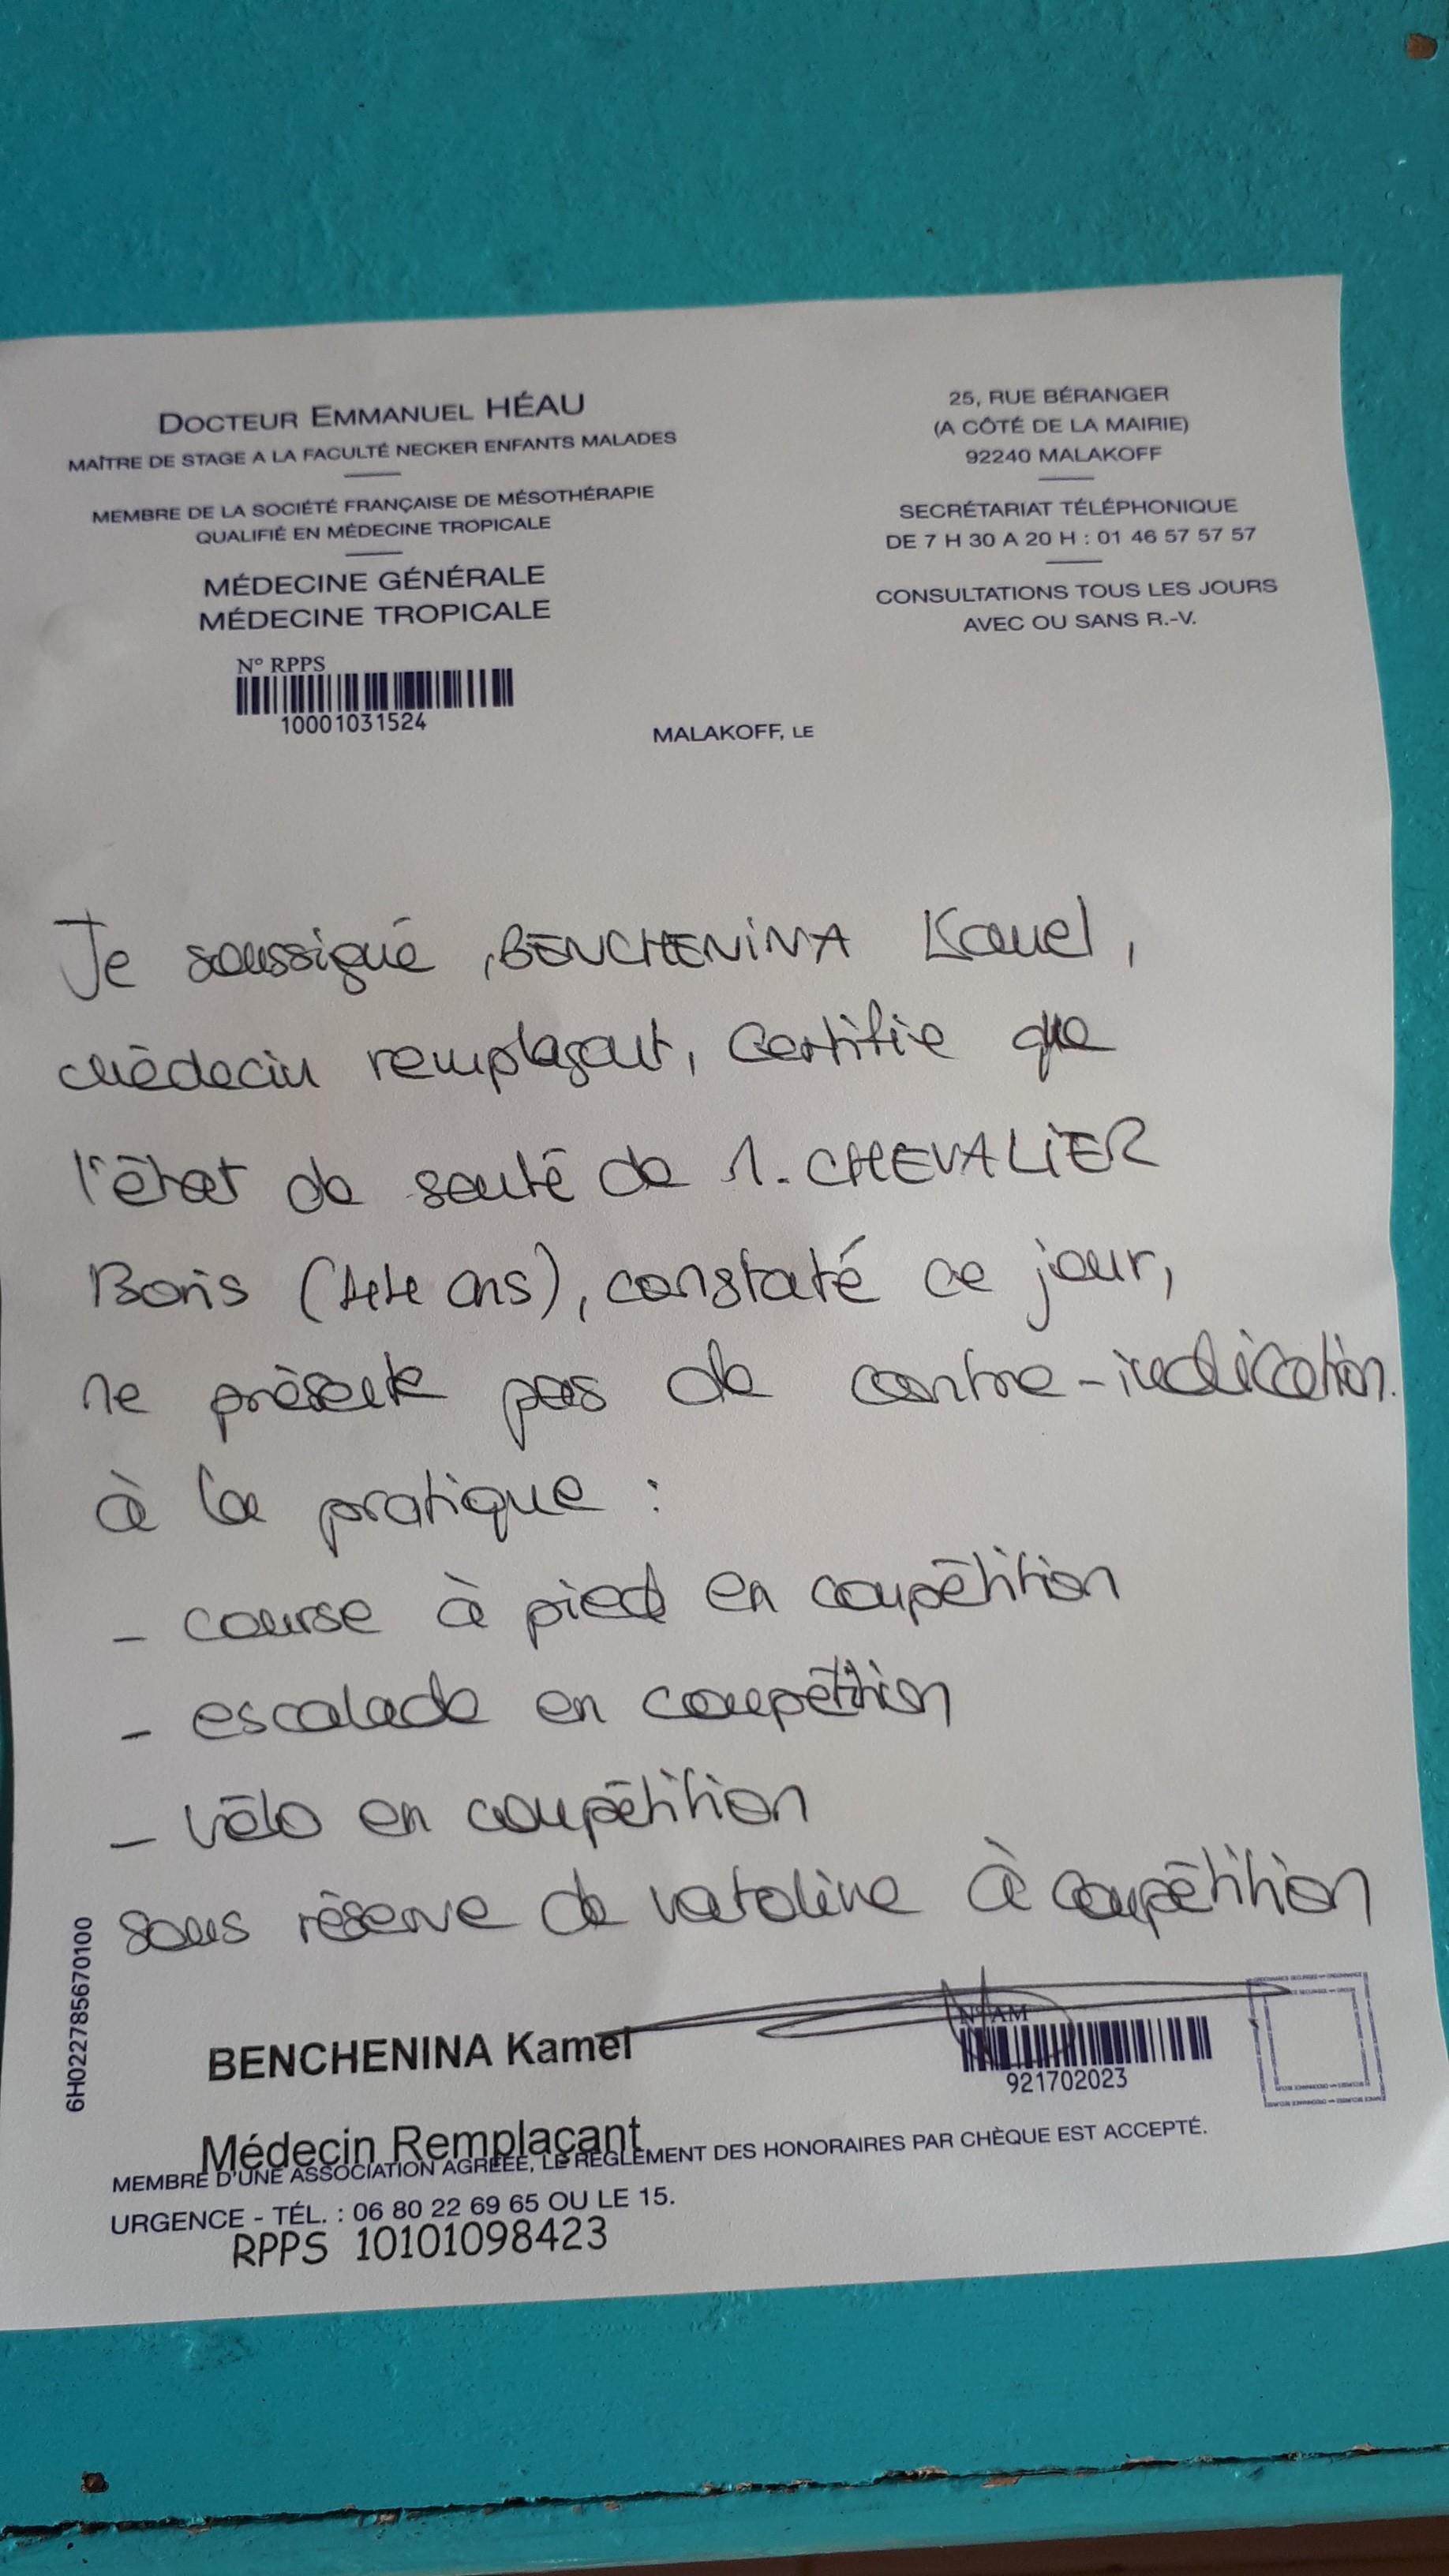 DOCTEUR EMMANUEL HÉAU
MAÎTRE DE STAGE A LA FACULTÉ NECKER ENFANTS MALADES
MEMBRE DE LA SOCIÉTÉ FRANÇAISE DE MÉSOTHÉRAPIE
QUALIFIÉ EN MÉDECINE TROPICALE
MÉDECINE GÉNÉRALE
MÉDECINE TROPICALE
N° RPPS
10001031524
25, RUE BÉRANGER
(A CÔTÉ DE LA MAIRIE)
92240 MALAKOFF
SECRÉTARIAT TÉLÉPHONIQUE
DE 7 H 30 A 20 H : 01 46 57 57 57
CONSULTATIONS TOUS LES JOURS
AVEC OU SANS R.-V.
MALAKOFF, LE
Je soussigné, BENCHENINA Kamel,
médecin remplaçant, certifie que
l'état de santé de M. CHEVALIER
Boris (44 ans), constaté ce jour,
ne présente pas de contre-indication
à la pratique :
- course à pied en compétition
- escalade en compétition
- vélo en compétition
sous réserve de à compétition
6H022785670100
BENCHENINA Kamel
N° AM
921702023
Médecin Remplaçant
MEMBRE D'UNE ASSOCIATION AGRÉÉE, LE RÈGLEMENT DES HONORAIRES PAR CHÈQUE EST ACCEPTÉ.
URGENCE - TÉL. : 06 80 22 69 65 OU LE 15.
RPPS 10101098423